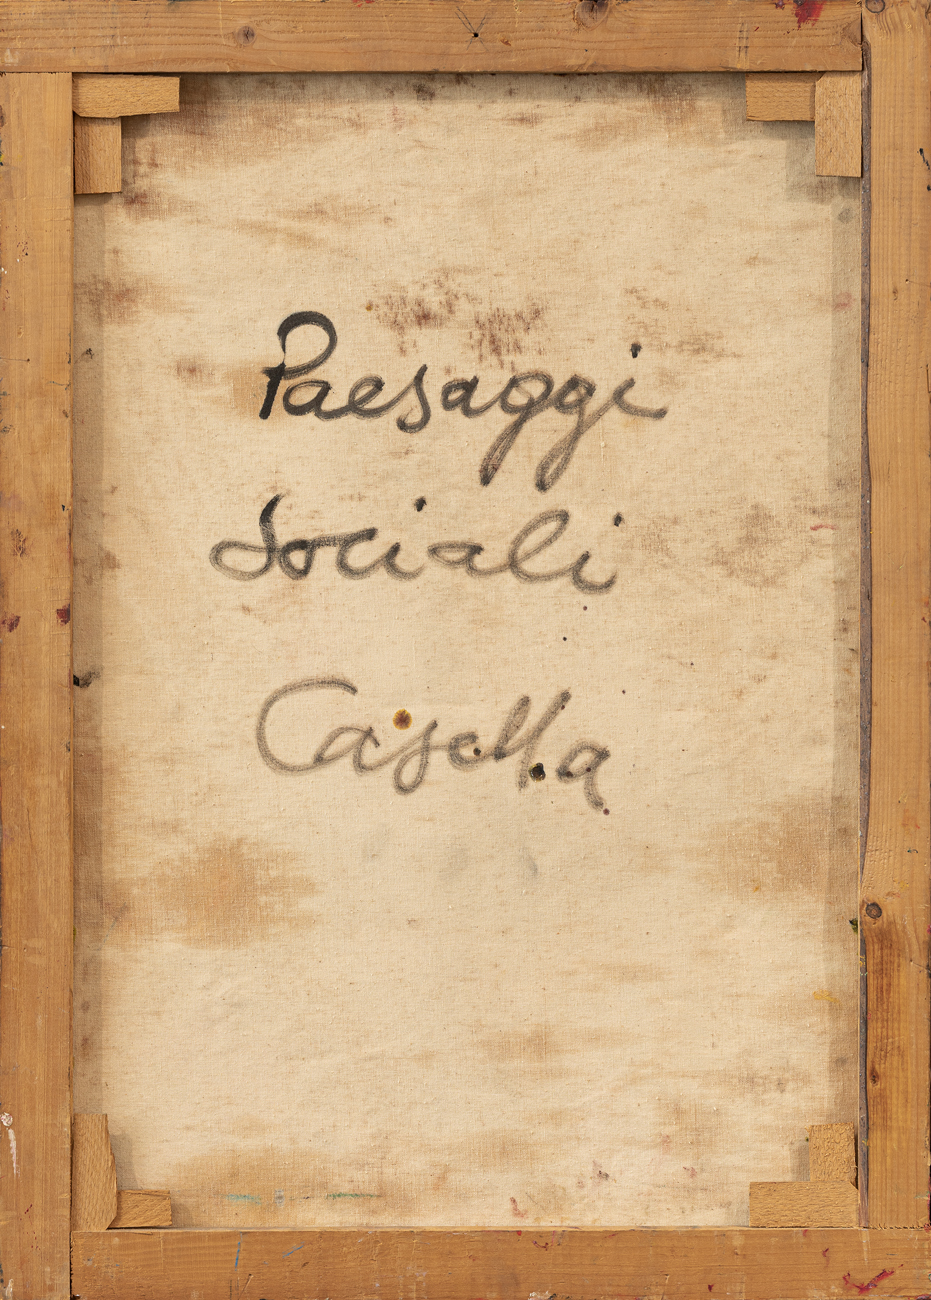 Paesaggi
Sociali
Casella